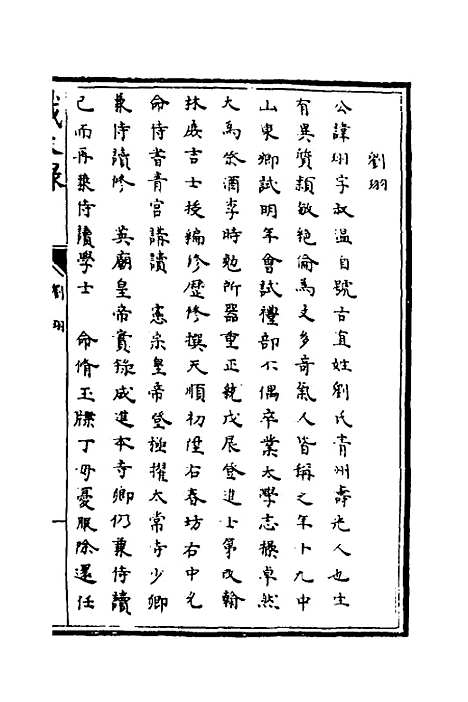 劉珝
公諱珝字叔温自號古直姓劉氏青州壽光人也生
有異質穎敏絶倫為文多奇氣人皆稱之年十九中
山東鄉試明年會試禮部不偶卒業太學志操卓然
大為祭酒李時勉所器重正統戊辰登進士第改翰
林庻吉士授編修歷修撰天順初陞右春坊右中允
命侍皆青宮講讀 憲宗皇帝登極擢太常寺少卿
兼侍讀修 英廟皇帝實錄成進本寺卿仍兼侍讀
已而再兼侍讀學士 命脩玉牒丁毋憂服除還任
劉珝
一